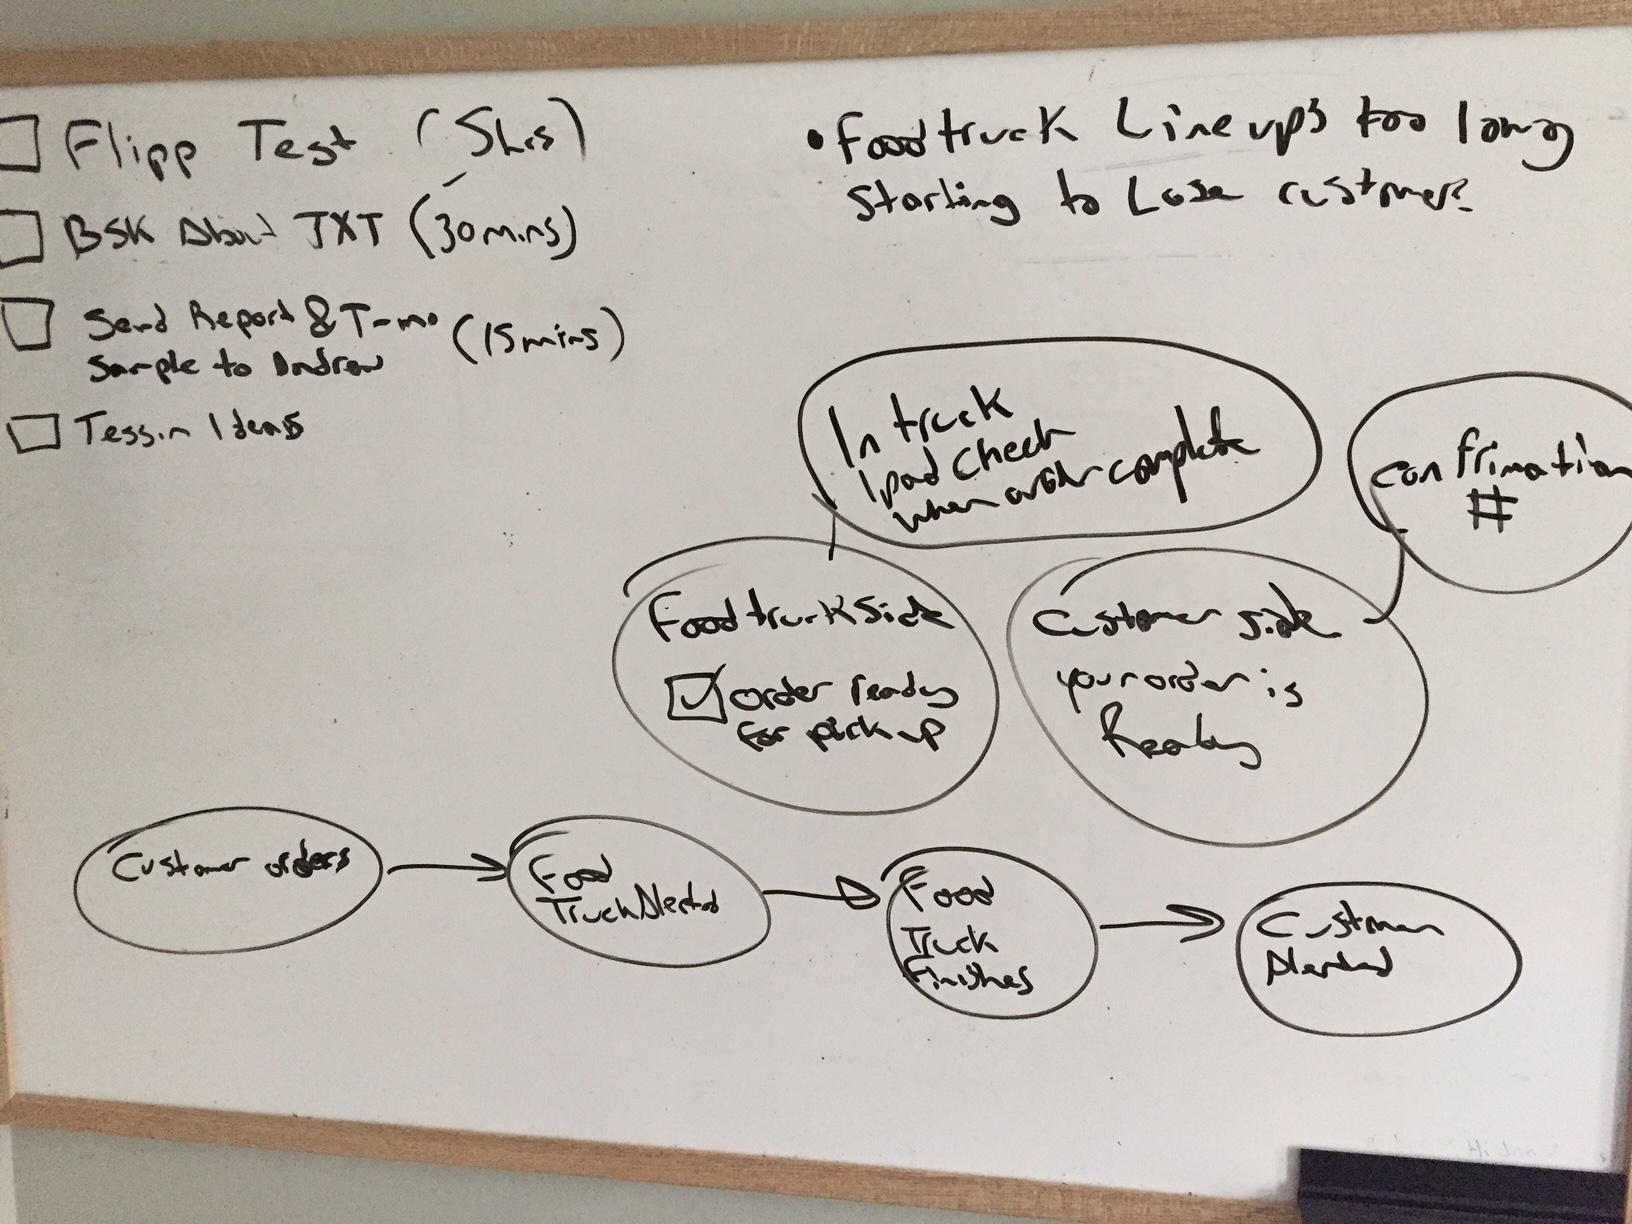 Flipp Test (5hrs)
BSK About TXT (30mins)
Send Report & T-mo (15mins)
Sample to Andrew
Tessin Ideas
• Food truck Line up's too long
Starting to Lose customers
In truck
Ipad Check
when order complete
confrimation
#
Food truck side
order ready
for pick up
Customer side
your order is
Ready
Customer orders
Food
Truck Alerted
Food
Truck
Finishes
Customer
Alerted